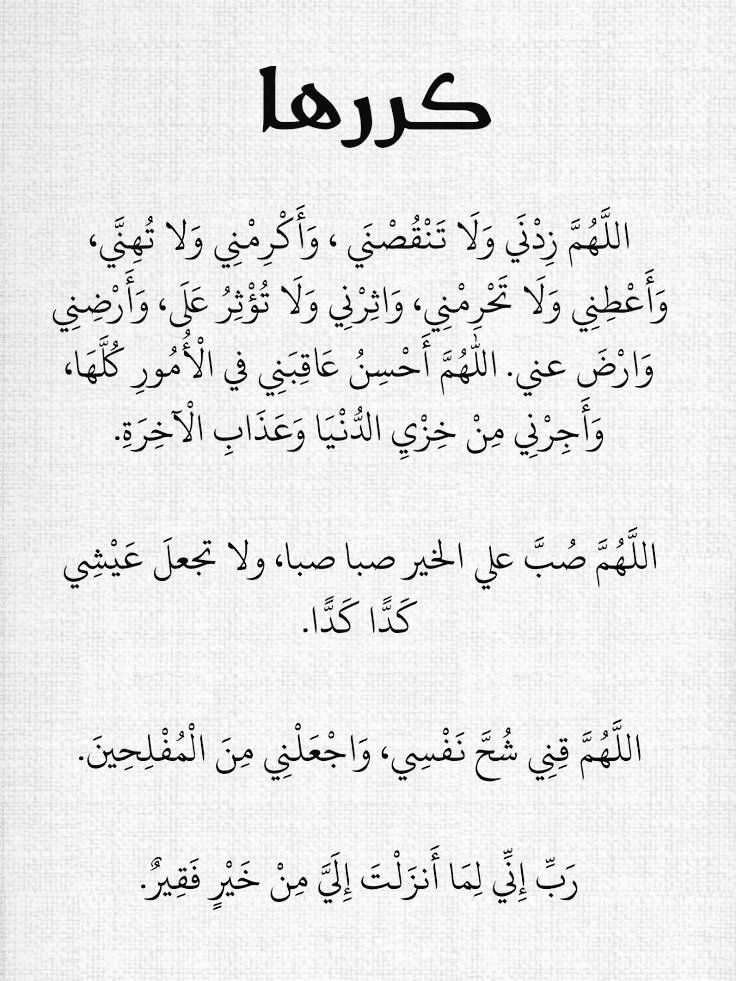 كررها
اللَّهُمَّ زِدْنَي وَلَا تَنْقُصْنَي ، وَأَكْرِمْنِي وَلا تُهِنَّي،
وَأَعْطِنِي وَلَا تَحْرِمْنِي، وَاثِرْنِي وَلَا تُؤْثِرُ عَلَى، وَأَرْضِنِي
وَارْضَ عني. اللهُمَّ أَحْسِنُ عَاقِبَنِي في الْأُمُورِ كُلَّهَا،
وَأَجِرْنِي مِنْ خِزْيِ الدُّنْيَا وَعَذَابِ الْآخِرَةِ.
اللَّهُمَّ صُبَّ علي الخير صبا صبا، ولا تجعلَ عَيْشِي
كَدًّا كَدًّا.
اللَّهُمَّ قِنِي شُحَّ نَفْسِي، وَاجْعَلْنِي مِنَ الْمُفْلِحِينَ.
رَبِّ إِنِّي لِمَا أَنزَلْتَ إِلَيَّ مِنْ خَيْرٍ فَقِيرٌ.